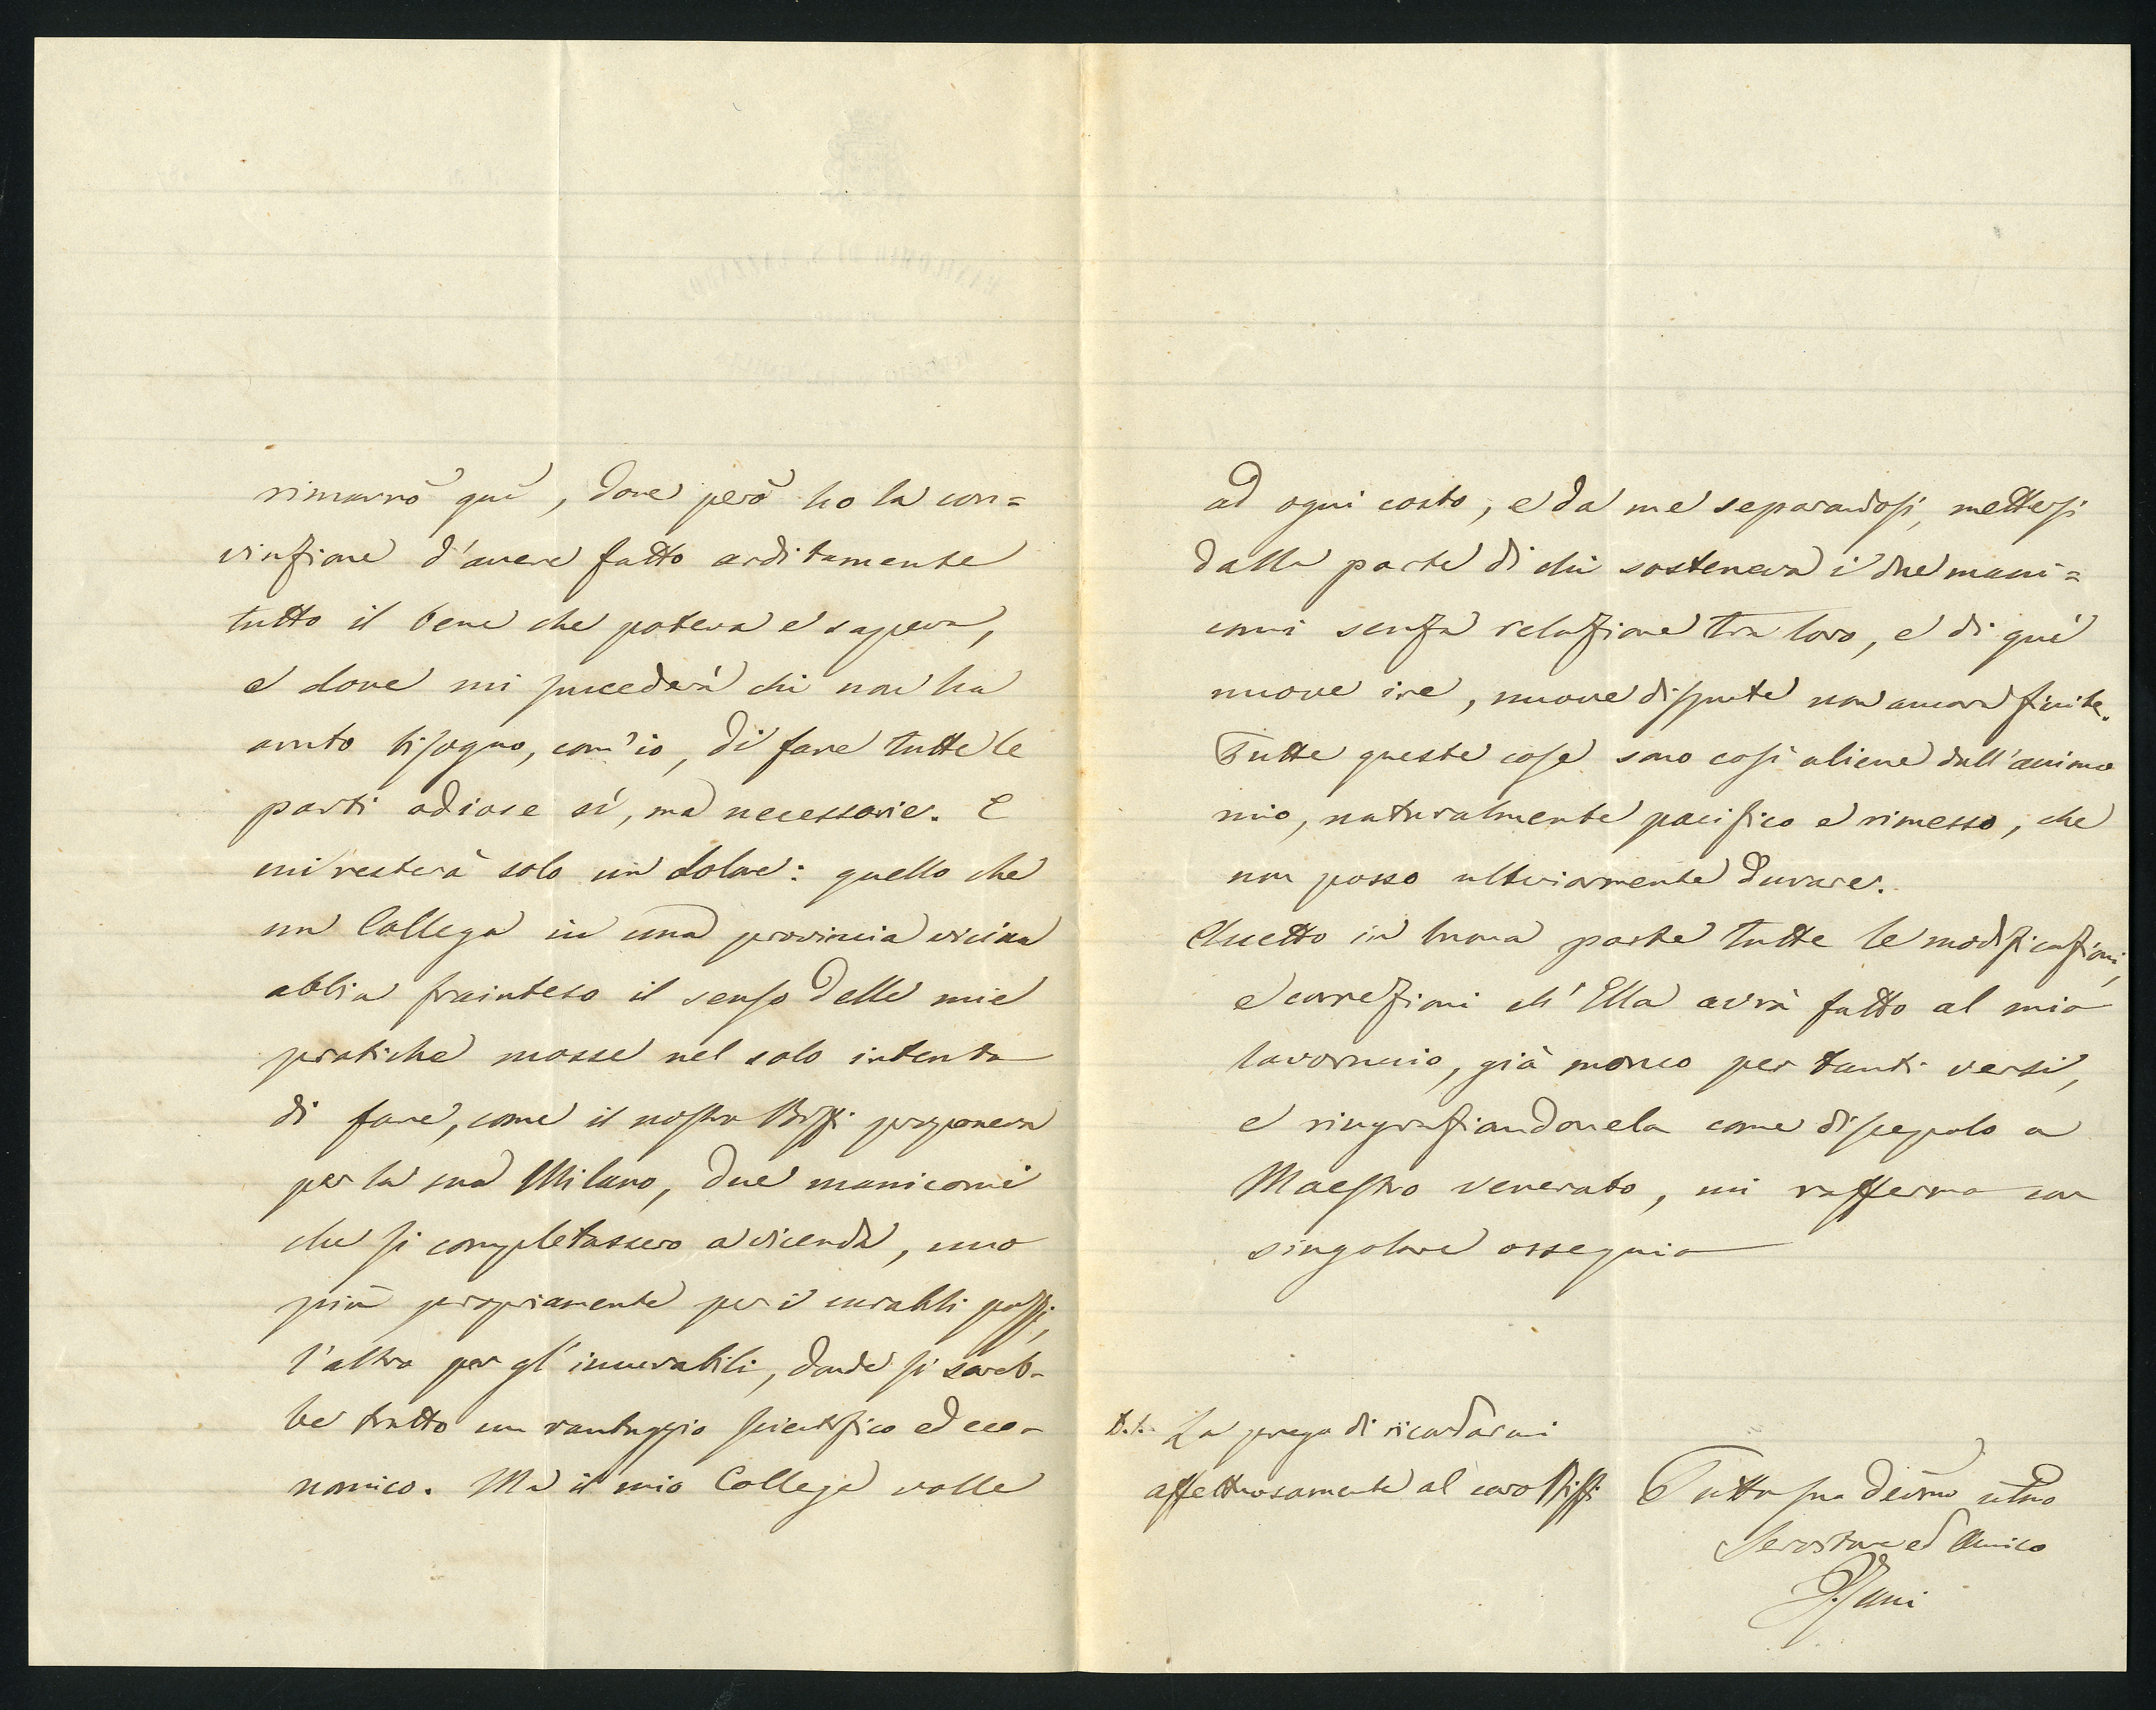 rimarrò quì, dove però ho la con=
vinzione d'avere fatto arditamente
tutto il bene che poteva e sapeva,
e dove mi succederà chi non ha
avuto bisogno, com'io, di fare tutte le
parti odiose sì, ma necessarie. E
mi resterà solo un dolore: quello che
un Collega in una provincia vicina
abbia frainteso il senso delle mie
pratiche mosse nel solo intento
di fare, come il nostro Biffi proponeva
per la sua Milano, due manicomi
che si completassero a vicenda, uno
più propriamente per i curabili pazzi,
l'altro per gl'incurabili, donde si sareb-
be tratto un vantaggio scientifico ed eco-
nomico. Ma il mio Collega volle
ad ogni costo, e da me separandosi, mettersi
dalla parte di chi sosteneva i due mani=
comi senza relazione tra loro, e di quì
nuove ire, nuove dispute non ancora finite.
Tutte queste cose sono così aliene dall'animo
mio, naturalmente pacifico e rimesso, che
non posso ulteriormente durare.
Accetto in buona parte tutte le modificazioni,
e correzioni ch'Ella avrà fatto al mio
lavoruccio, già monco per tanti versi,
e ringraziandonela come discepolo a
Maestro venerato, mi raffermo con
singolare ossequio
La prego di ricordarmi
affettuosamente al caro Biffi
Tutto suo devmo
Servitore ed Amico
Zani